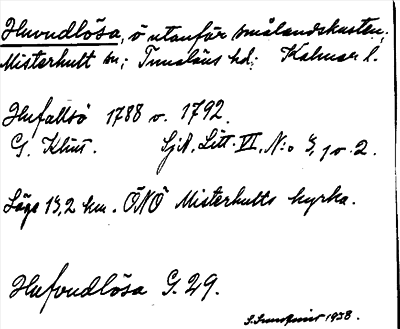 Huvudlösa, ö utanför smålandskusten;
Misterhult sn; Tunaläns hd; Kalmar l.
Hufallsö 1788 o. 1792.
G. Klint. Sjö. Litt. VI, N:o 3, 1 o. 2.
Läge 13,2 km. ÖNÖ Misterhults kyrka.
Hufvudlösa G. 29.
1938.